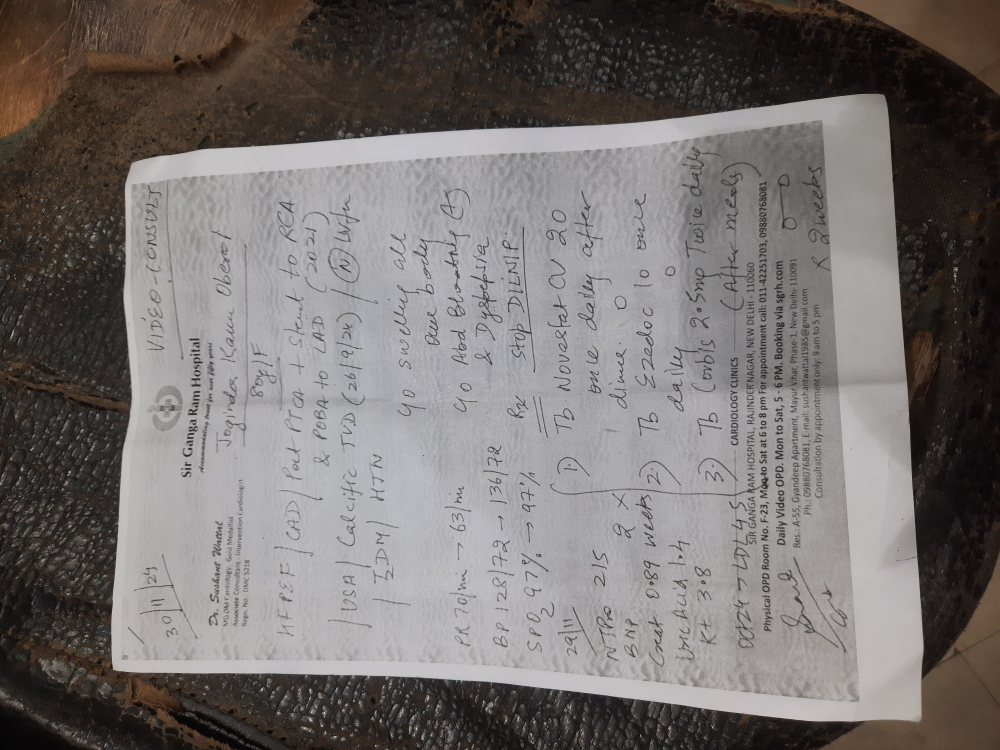 30/11/24
VIDEO-CONSULT
Sir Ganga Ram Hospital
Dr. Sushant Wattal
MD DM Cardiology, Gold Medalist
Associate Consultant - Intervention Cardiologist
Regn. No.: DMC 5218
Joginder Kaur Oberoi
80y/F
HFPEF / CAD / Post PTCA + Stent to RCA
& POBA to LAD (2021)
/ USA / Calcific TVD (26/9/24) / (N) LVEFn
/ IDM / HTN
c/o swelling all
over body
PR 70/mn → 63/mn
c/o Abd Bloating (+)
& Dyspepsia
BP 128/72 → 136/72
SPO2 97% → 97%
Rx STOP DILNIP.
29/11
NTPro 215
BNP
Creat 0.89
Uric Acid 1.4
K+ 3.8
Oct 24 → LDL 45
2 x
weeks
1.) Tb Novastat CV 20
one daily after
dinner
2.) Tb Ezedoc 10 one
daily
3.) Tb Corbis 2.5mg Twice daily
(After meals)
x 2 weeks
CARDIOLOGY CLINICS
SIR GANGA RAM HOSPITAL, RAJINDER NAGAR, NEW DELHI - 110060
Physical OPD Room No. F-23, Mon to Sat at 6 to 8 pm For appointment call: 011-42251703, 09880768081
Daily Video OPD. Mon to Sat, 5 - 6 PM. Booking via sgrh.com
Res.: A-55, Gyandeep Apartment, Mayur Vihar, Phase-1, New Delhi-110091
Ph.: 09880768081, E-mail: sushantwattal1985@gmail.com
Consultation by appointment only: 9 am to 5 pm